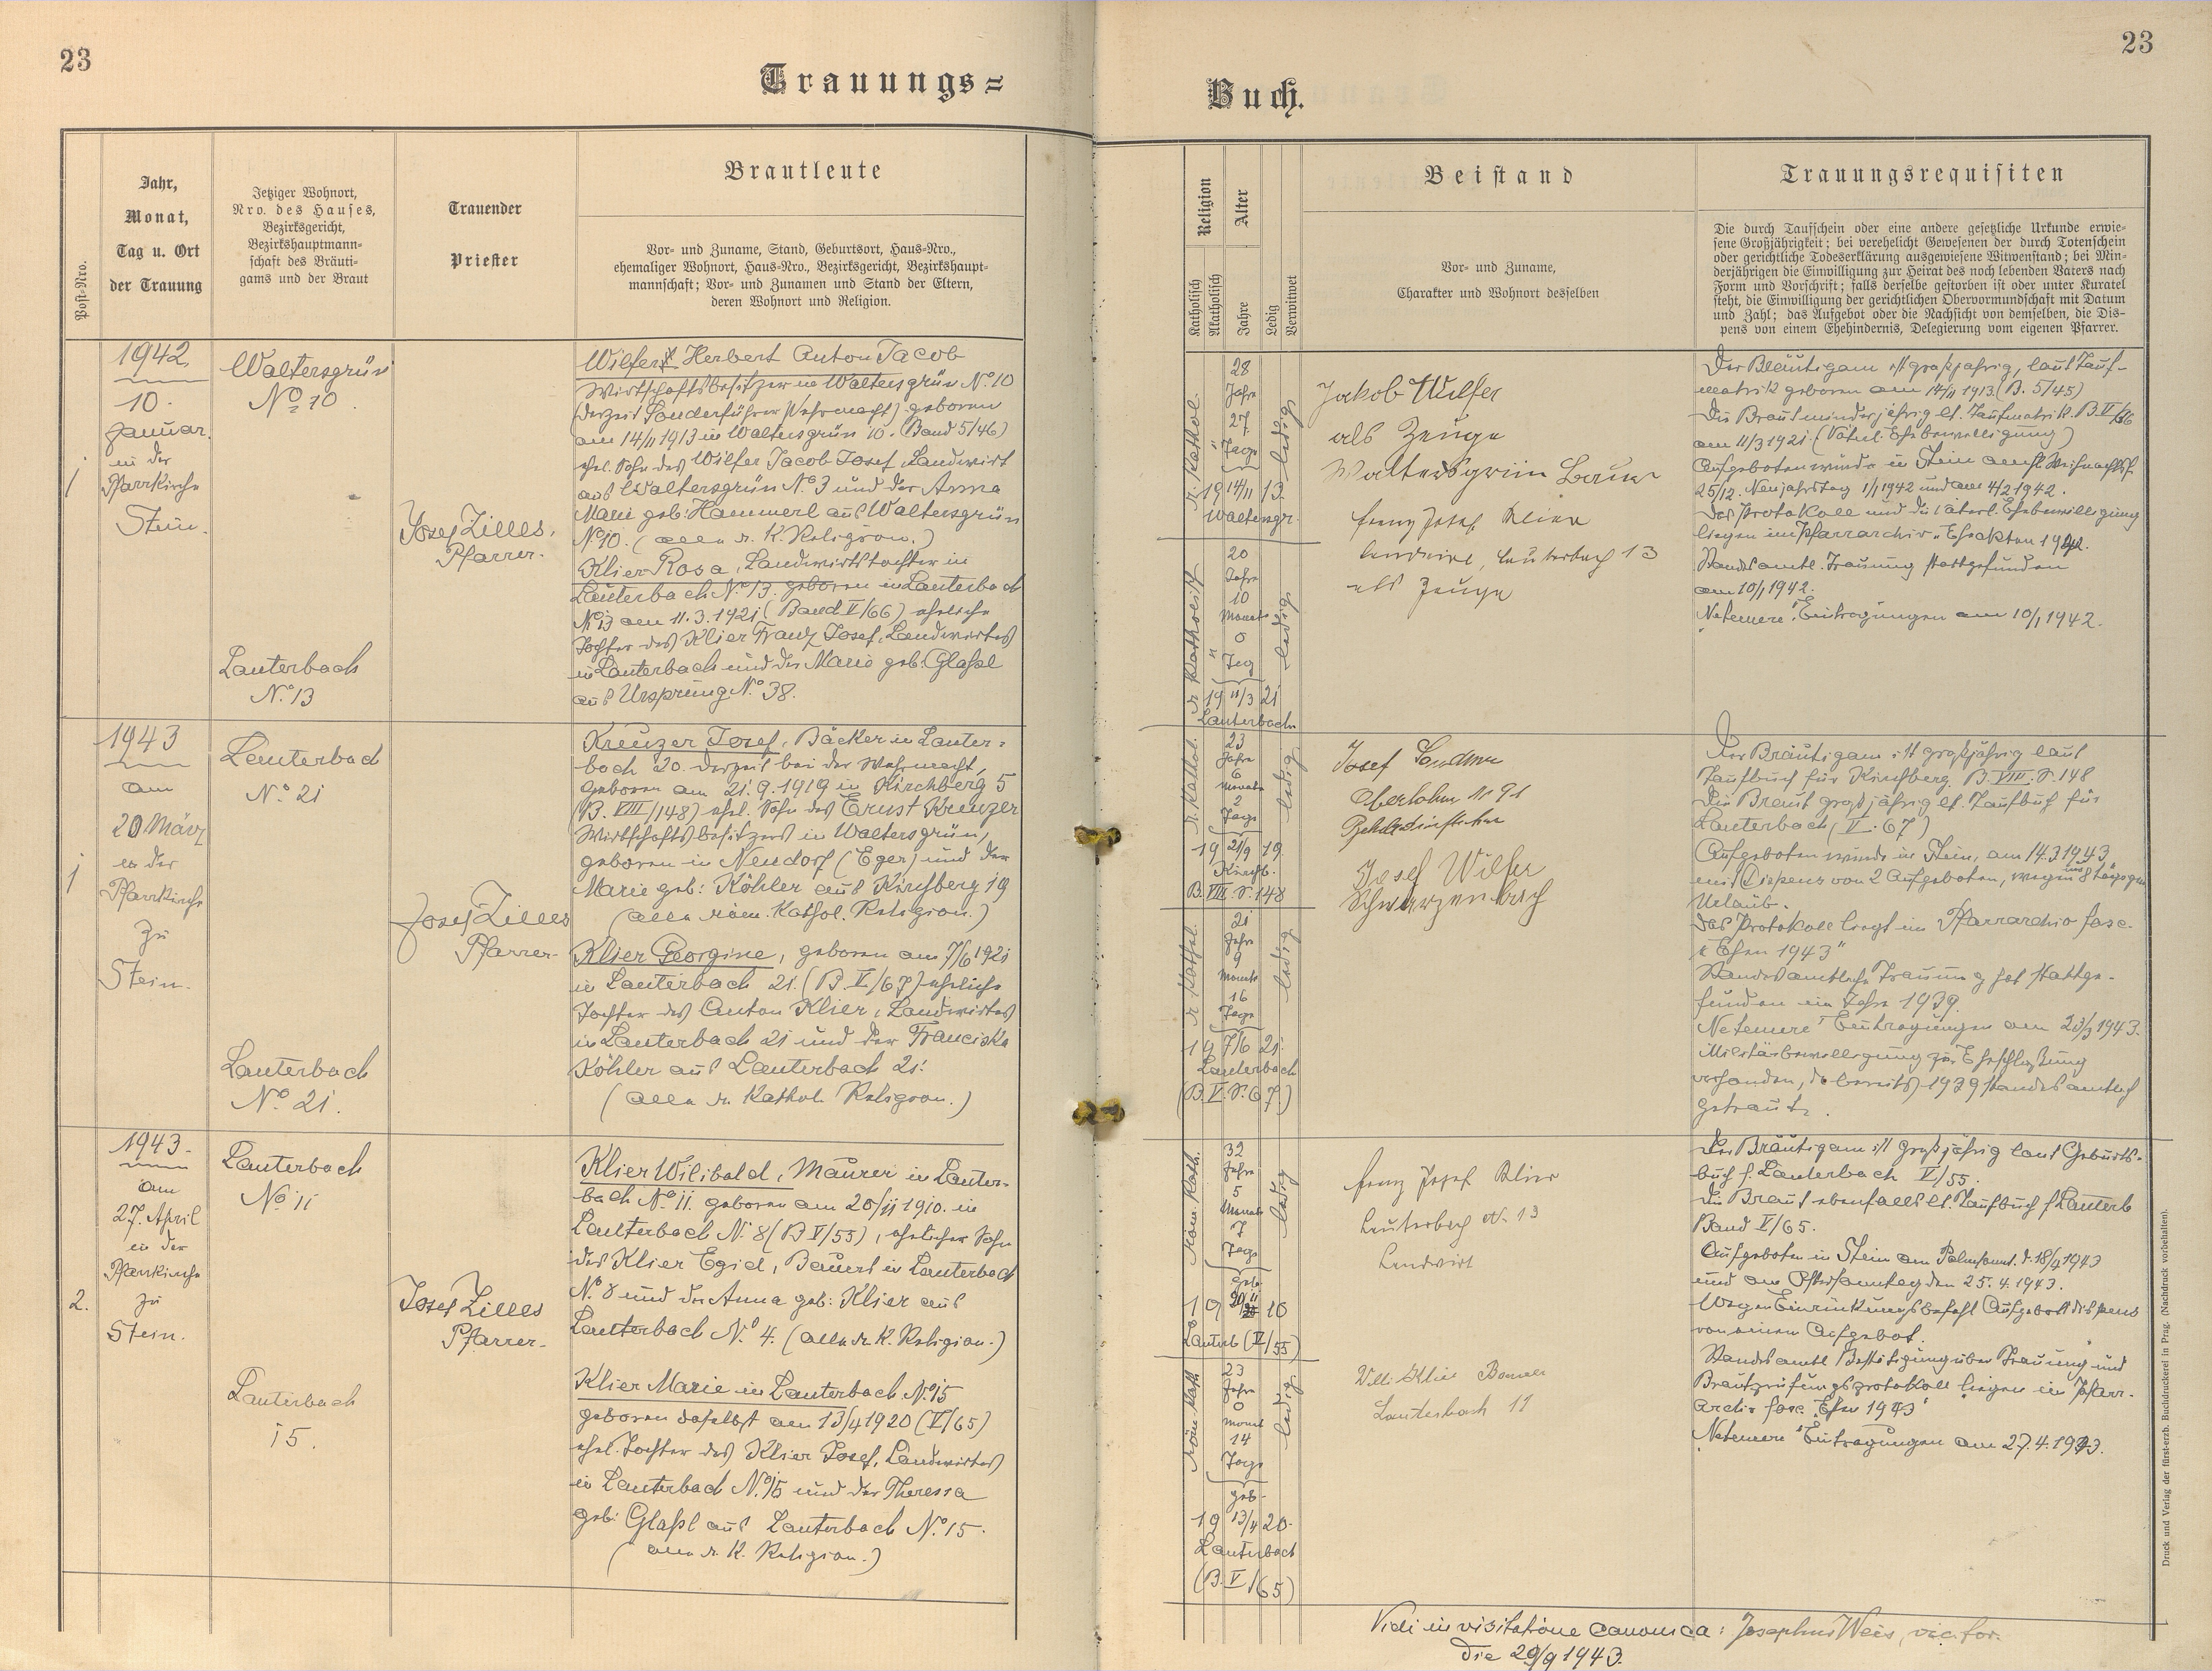 23
23
Trauungs=
Buch.
Post-Nro.
Jahr,
Monat,
Tag u. Ort
der Trauung
Jetziger Wohnort,
Nro. des Hauses,
Bezirksgericht,
Bezirkshauptmann-
schaft des Bräuti-
gams und der Braut
Trauender
Priester
Brautleute
Vor- und Zuname, Stand, Geburtsort, Haus-Nro.,
ehemaliger Wohnort, Haus-Nro., Bezirksgericht, Bezirkshaupt-
mannschaft; Vor- und Zunamen und Stand der Eltern,
deren Wohnort und Religion.
Religion
Katholisch
Akatholisch
Alter
Jahre
Ledig
Verwitwet
Beistand
Vor- und Zuname,
Charakter und Wohnort desselben
Trauungsrequisiten
Die durch Taufschein oder eine andere gesetzliche Urkunde erwie-
sene Großjährigkeit; bei verehelicht Gewesenen der durch Totenschein
oder gerichtliche Todeserklärung ausgewiesene Witwenstand; bei Min-
derjährigen die Einwilligung zur Heirat des noch lebenden Vaters nach
Form und Vorschrift; falls derselbe gestorben ist oder unter Kuratel
steht, die Einwilligung der gerichtlichen Obervormundschaft mit Datum
und Zahl; das Aufgebot oder die Nachsicht von demselben, die Dis-
pens von einem Ehehindernis, Delegierung vom eigenen Pfarrer.
1
1942
10.
Januar.
in der
Pfarrkirche
Stein.
Waltersgrün
No 10
Lauterbach
No. 13
Josef Zilles,
Pfarrer.
Wilfert Herbert Anton Jacob
Wirtschaftsbesitzer in Waltersgrün No. 10
(derzeit Sonderführer Wehrmacht) geboren
am 14/11 1913 in Waltersgrün 10. (Band 5/46)
ehel. Sohn des Wilfer Jacob Josef, Landwirt
aus Waltersgrün No. 3 und der Anna
Marie geb: Hammerl aus Waltersgrün
No. 10. (alle r. K. Religion.)
Klier Rosa, Landwirtstochter in
Lauterbach No. 13. geboren in Lauterbach
No. 13 am 11.3.1921 (Band V/66) eheliche
Tochter des Klier Franz Josef, Landwirtes
in Lauterbach und der Marie geb: Glaßl
aus Ursprung No. 38.
r. Kathol.
28
Jahre
27
Tage
ledig
19 14/11 13.
Waltersgr.
r. Katholisch
20
Jahre
10
Monate
0
Tag
ledig
19 11/3 21
Lauterbach.
Jakob Wilfer
als Zeuge
Waltersgrün Bauer
Franz Josef Klier
Landwirt, Lauterbach 13
als Zeuge
Der Bräutigam ist großjährig, laut Tauf-
matrik geboren am 14/11 1913. (B. 5/45)
Die Braut minderjährig lt. Taufmatrik. B. V/66
am 11/3 1921. (Väterl. Ehebewilligung)
Aufgeboten wurde in Stein am hl. Weihnachtsf.
25/12. Neujahrstag 1/1 1942 und am 4/2 1942.
Das Protokoll und die väterl. Ehebewilligung
liegen im Pfarrarchiv „Eheakten 1942.
Standesamtl. Trauung stattgefunden
am 10/1 1942.
„Netemere" Eintragungen am 10/1 1942.
1
1943
am
20 März
in der
Pfarrkirche
zu
Stein.
Lauterbach
No. 21
Lauterbach
No. 21.
Josef Zilles
Pfarrer.
Kreuzer Josef, Bäcker in Lauter-
bach 20. derzeit bei der Wehrmacht,
geboren am 21.9.1919 in Kirchberg 5
(B. VIII/148) ehel. Sohn des Ernst Kreuzer
Wirtschaftsbesitzers in Waltersgrün,
geboren in Neudorf (Eger) und der
Marie geb: Köhler aus Kirchberg 19
(alle röm. Kathol. Religion.)
Klier Georgine, geboren am 7/6 1921
in Lauterbach 21. (B. V/67) eheliche
Tochter des Anton Klier, Landwirtes
in Lauterbach 21 und der Franciska
Köhler aus Lauterbach 21.
(alle r. Kathol. Religion.)
r. Kathol.
23
Jahre
6
Monate
2
Tage
ledig
19 21/9 19
Kirchb.
B. VIII. S. 148
r. Kathol.
21
Jahre
9
Monate
16
Tage
ledig
19 7/6 21.
Lauterbach
(B. V. S. 67.)
Josef
Josef Wilfer
Schwarzenbach
Der Bräutigam ist großjährig laut
Taufbuch für Kirchberg B. VIII. S. 148
Die Braut großjährig lt. Taufbuch für
Lauterbach (V. 67)
Aufgeboten wurde in Stein, am 14.3.1943
mit Dispens von 2 Aufgeboten, wegen nur 8 tägigen
Urlaub.
Das Protokoll liegt im Pfarrarchiv fasc.
„Ehen 1943"
Standesamtliche Trauung hat stattge-
funden im Jahre 1939.
„Netemere" Eintragungen am 23/3 1943.
Militärbewilligung zur Eheschließung
vorhanden, da bereits 1939 standesamtlich
getraut.
2.
1943.
am
27. April
in der
Pfarrkirche
zu
Stein.
Lauterbach
No. 11
Lauterbach
15.
Josef Zilles
Pfarrer.
Klier Wilibald, Maurer in Lauter-
bach No. 11. geboren am 20/11 1910. in
Lauterbach No. 8 (B V/55), ehelicher Sohn
des Klier Egid, Bauers in Lauterbach
No. 8 und der Anna geb: Klier aus
Lauterbach No. 4. (alle r. K. Religion.)
Klier Marie in Lauterbach No. 15
geboren daselbst am 13/4 1920 (V/65)
ehel. Tochter des Klier Josef, Landwirtes
in Lauterbach No. 15 und der Theresia
geb: Glaßl aus Lauterbach No. 15.
(alle r. K. Religion.)
Röm. Kath.
32
Jahre
5
Monate
7
Tage
ledig
geb.
19 20/11 10
Lauterb (V/55)
Röm. Kath
23
Jahre
0
Monat
14
Tage
ledig.
geb.
19 13/4 20.
Lauterbach
(B. V/65)
Franz Josef Klier
Lauterbach N. 13
Landwirt
Willi Klier
Lauterbach 11
Der Bräutigam ist großjährig laut Geburts-
buch f. Lauterbach V/55.
Die Braut ebenfalls lt. Taufbuch f Lauterb
Band V/65.
Aufgeboten in Stein am Palmsonnt. d. 18/4 1943
und am Ostersonntag den 25.4.1943.
Wegen Einrückungsbefehl Aufgebotsdispens
von einem Aufgebot.
Standesamtl Bestätigung über Trauung und
Brautprüfungsprotokoll liegen im Pfarr-
archiv fasc. „Ehen 1943"
„Netemere" Eintragungen am 27.4.1943.
Vidi in visitatione canonica: Josephus Weis, vic. for.
die 29/9 1943.
Druck und Verlag der fürst-erzb. Buchdruckerei in Prag. (Nachdruck vorbehalten).